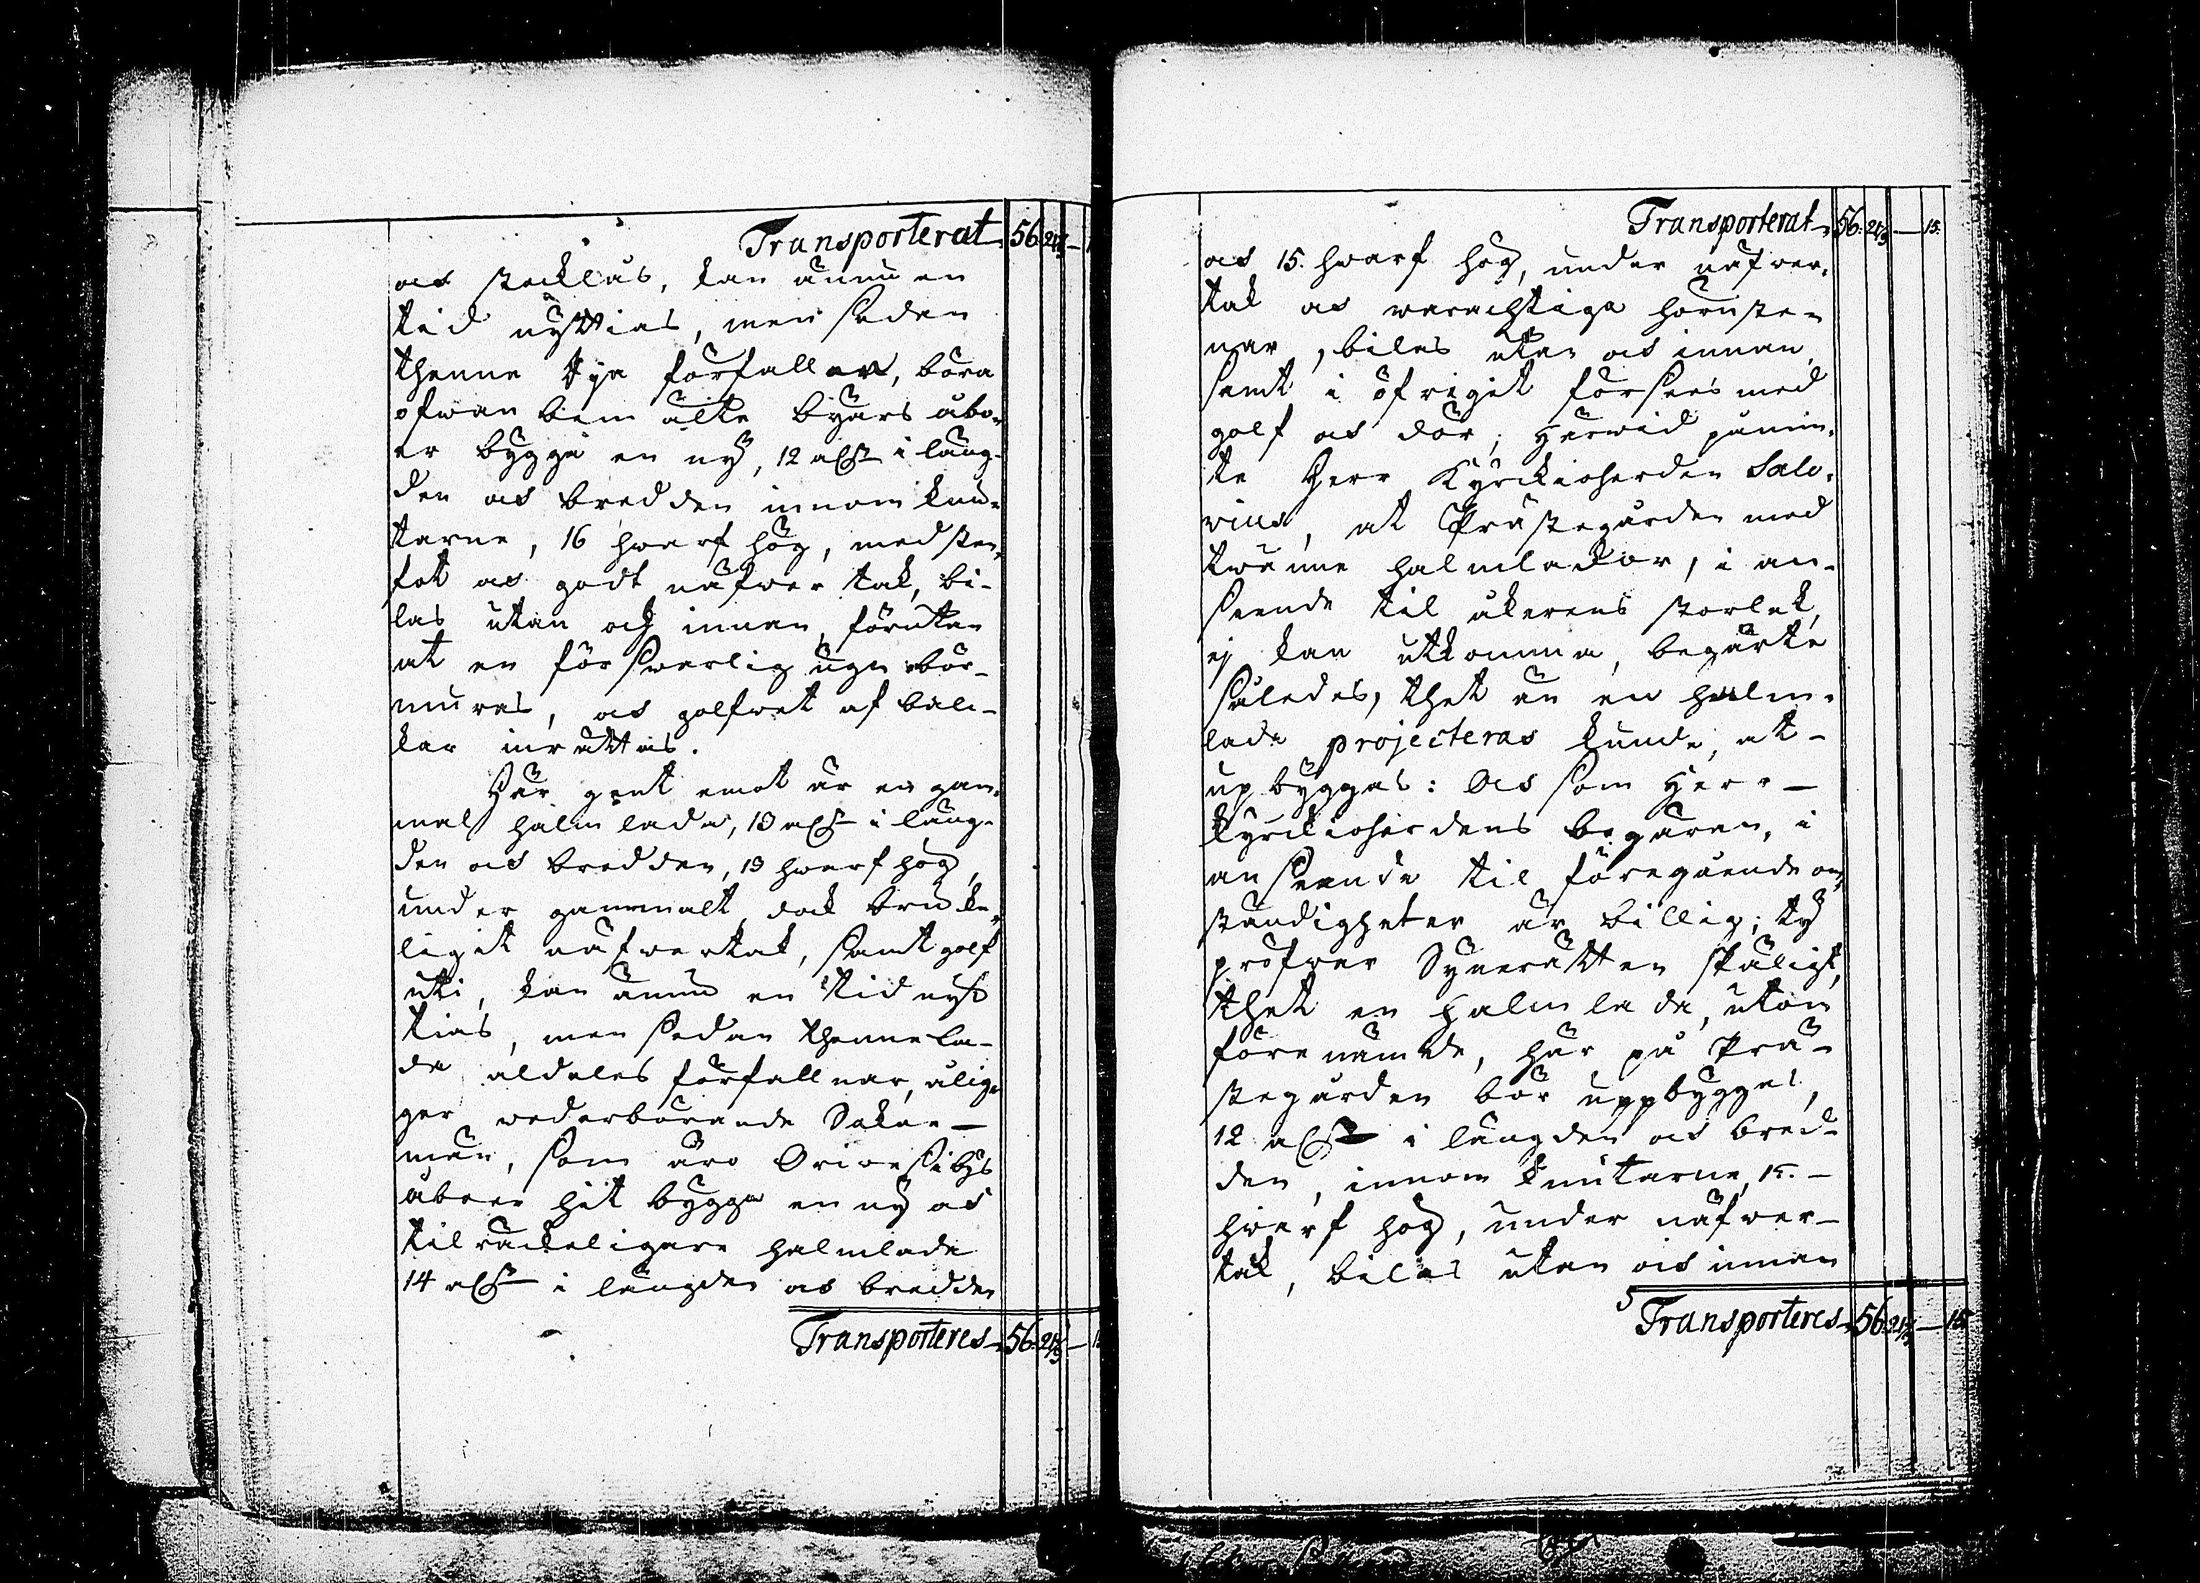 Transporterat 56. 21⅓ —
och stocklås, kan ännu en
tid nyttias, men sedan
thenne Ria förfaller, böra
ofwanbem:älte byars åbo-
er bygga en ny, 12 aln:r i läng-
den och bredden innom knu-
tarne, 16 hwarf hög, med sten-
fot och godt näfwer tak, bi-
las utan och innan, förutan
at en förswarlig ugn bör
muras, och golfwet af bål-
kar inrättas.
Här gent emot är en gam-
mal halmlada, 13 aln:r i läng-
den och bredden, 13 hwarf hög,
under gammalt dock bruke-
ligit näfwertak, samt golf
uti, kan ännu en tid nyt-
tias, men sedan thenne la-
da aldeles förfallnar, ålig-
ger wederbörande Sokne-
män, som äro Oriwesi bys
åboer hit bygga en ny och
tilräckeligare halmlada
14 aln:r i längden och bredden
Transporteres 56. 21⅓ —
Transporterat 56. 21⅓ — 15.
och 15. hwarf hög, under näfwer-
tak och warachtiga hörnste-
nar, bilas utan och innan,
samt i öfrigit förses med
golf och dör; Härwid påmin-
te Herr Kyrckioherden Salo-
vius, at Prästegården med
twänne halmlador, i an-
seende til åkerens storlek,
ej kan utkomma, begärte
således, thet än en halm-
lada projecteras kunde, at
upbyggas: Och som Herr
Kyrckioherdens begäran, i
anseende til föregående om-
ständigheter är billig; ty
pröfwar Synerätten skäligt,
thet en halmlada, utom
förenämde, här på Prä-
stegården bör uppbyggas,
12 aln:r i längden och bred-
den, innom knutarne, 15.
hwarf hög, under näfwer-
tak, bilas utan och innan
Transporteres 56. 21⅓ — 15